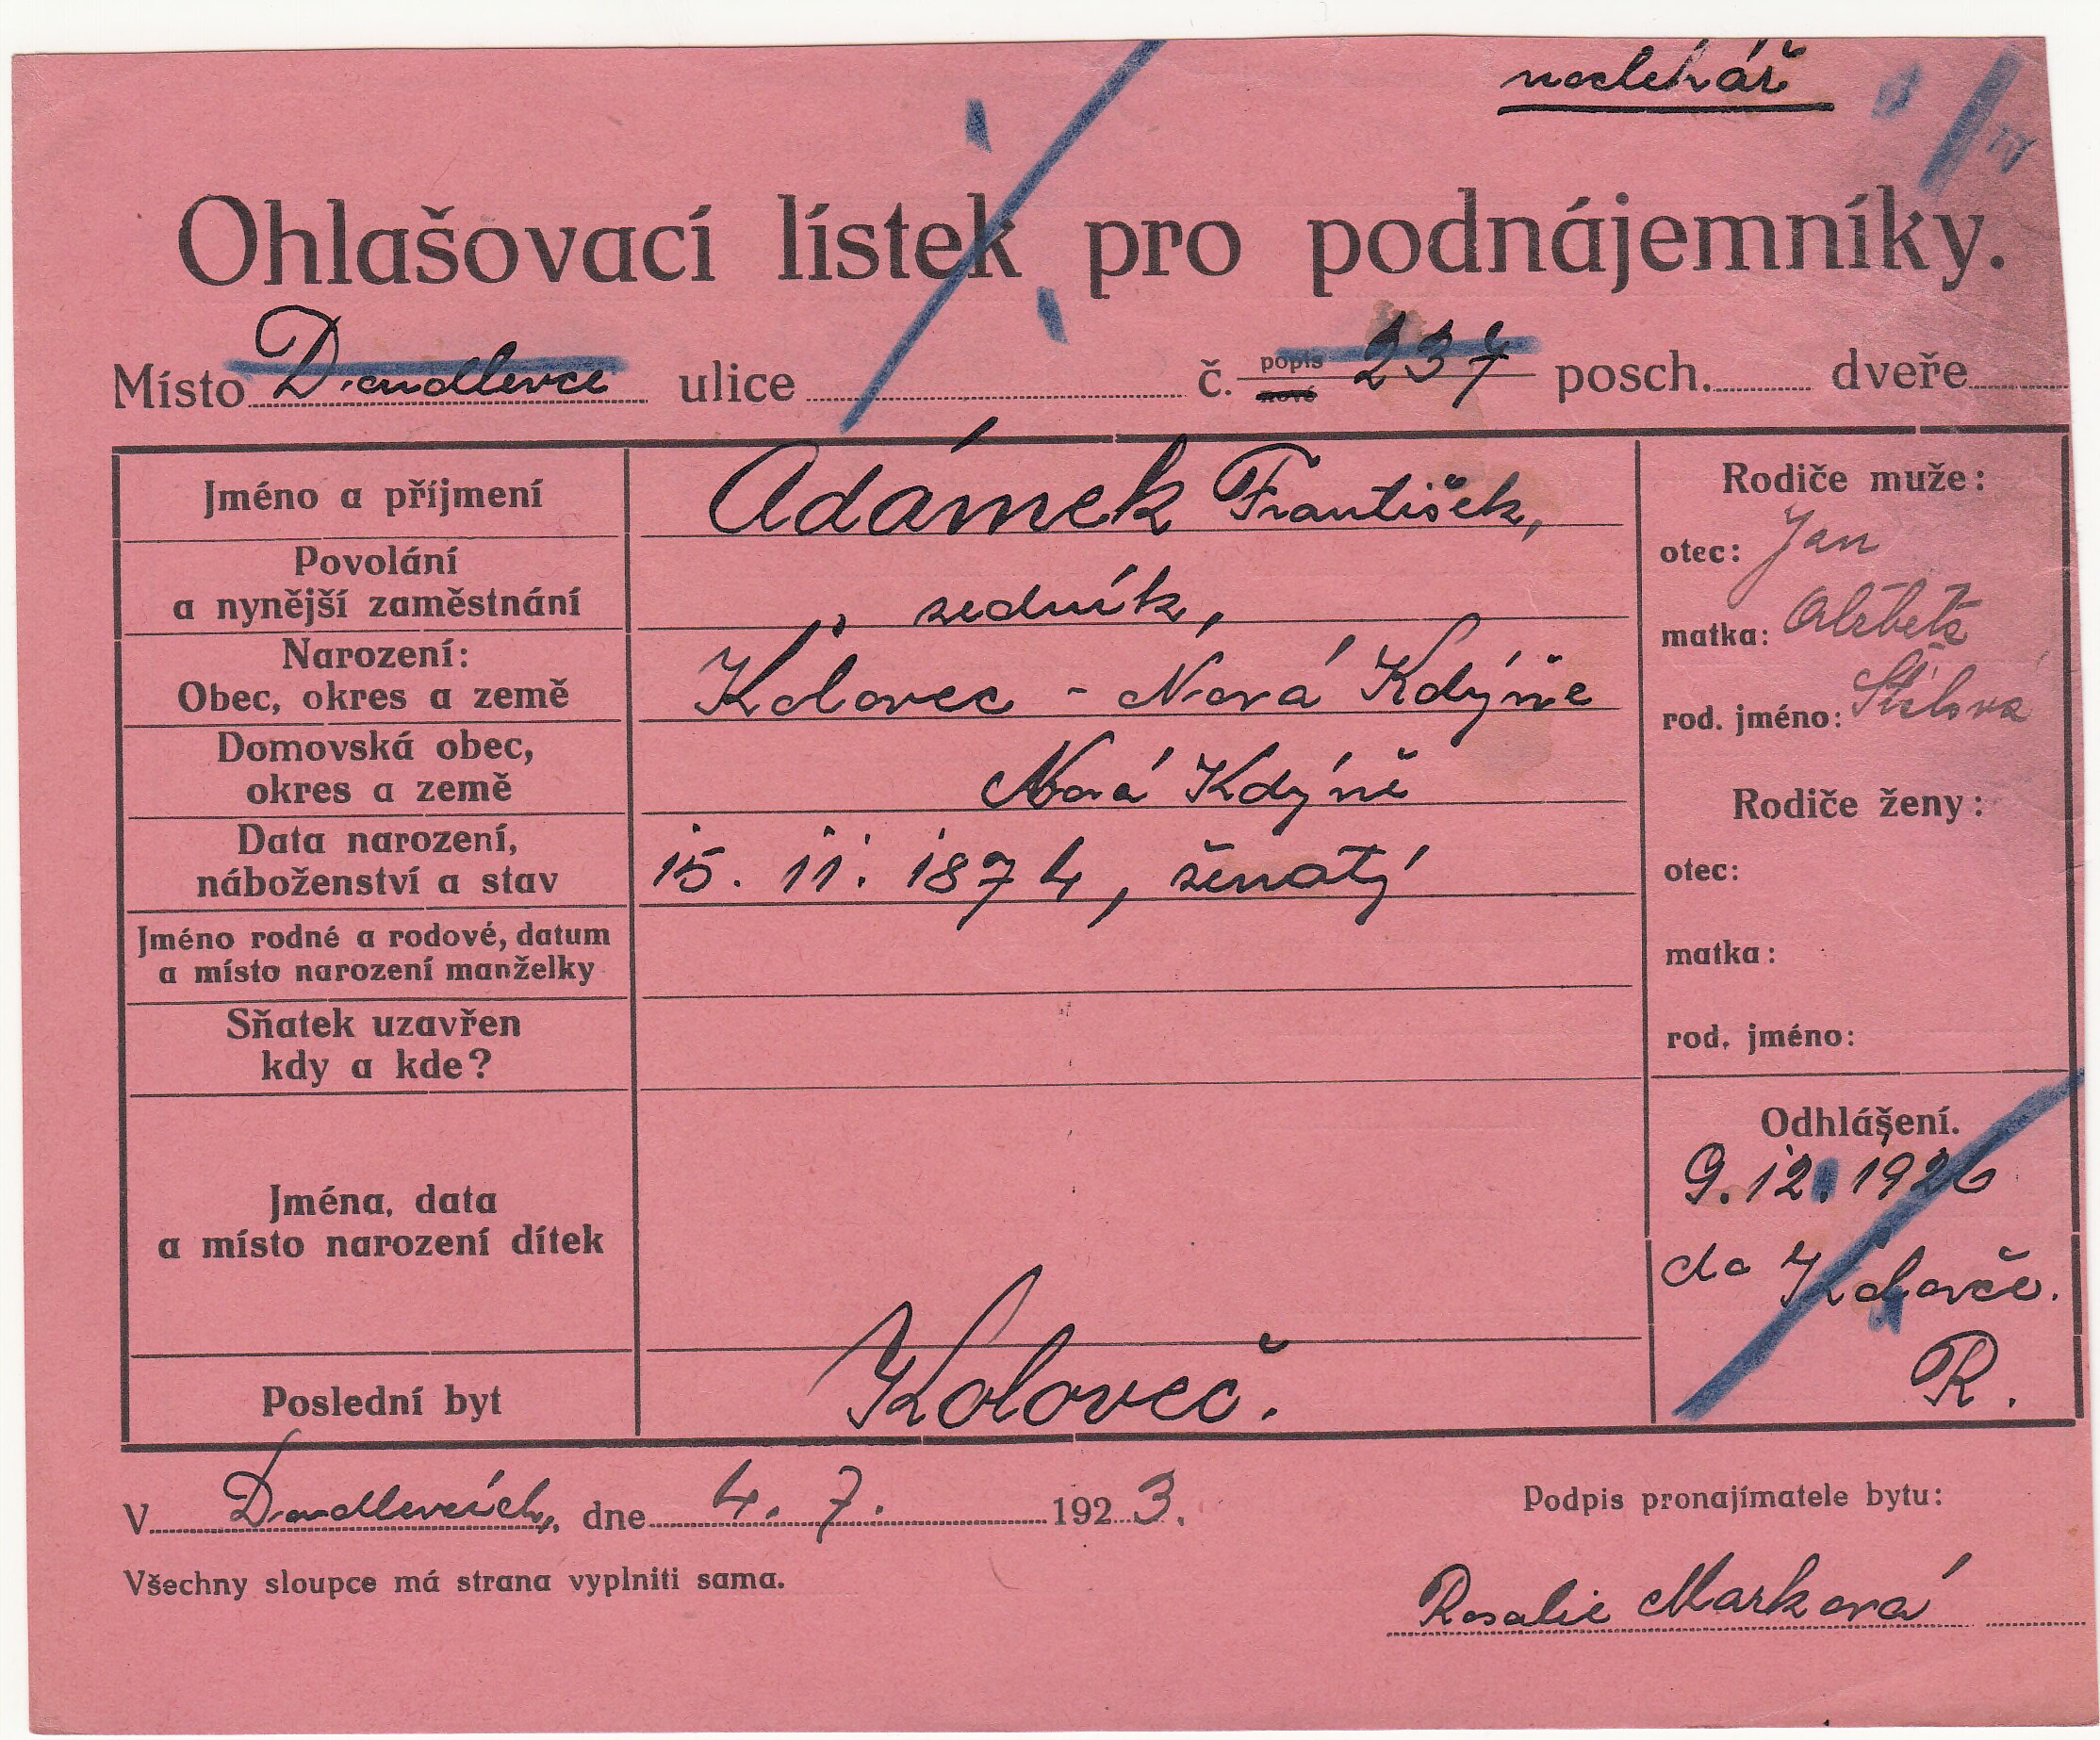 noclehář
Ohlašovací lístek pro podnájemníky.
Místo Doudlevce ulice č. popis 237 posch. dveře
nové
Jméno a příjmení Adámek František,
Povolání
a nynější zaměstnání zedník,
Narození:
Obec, okres a země Kolovec - Nová Kdýně
Domovská obec,
okres a země Nová Kdýně
Data narození,
náboženství a stav 15. 11. 1874, ženatý
Jméno rodné a rodové, datum
a místo narození manželky
Sňatek uzavřen
kdy a kde?
Jména, data
a místo narození dítek
Poslední byt Kolovеč.
Rodiče muže:
otec: Jan
matka: Alžběta
rod. jméno:
Rodiče ženy:
otec:
matka:
rod. jméno:
Odhlášení.
9. 12. 1926
do Kolovče.
R.
V Doudlevcích, dne 4. 7. 1923.
Podpis pronajímatele bytu:
Všechny sloupce má strana vyplniti sama.
Rosalie Marková